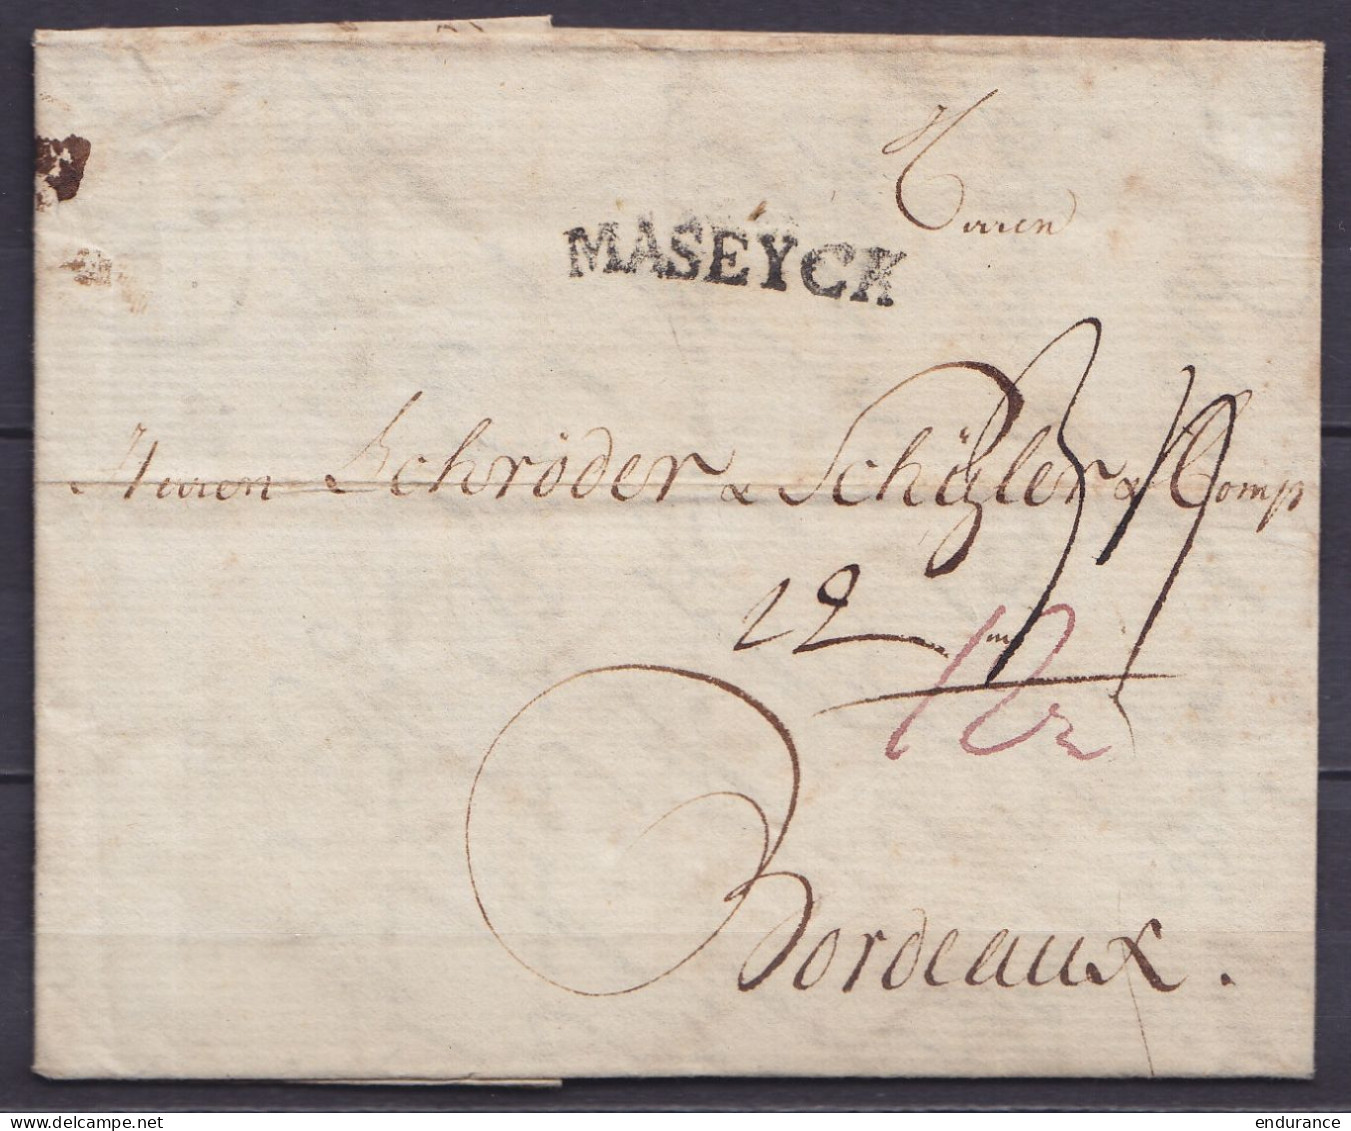 MASEYCK
Herren Schröder & Schÿler & Comp
22
Bordeaux.
delcampe.net
endurance